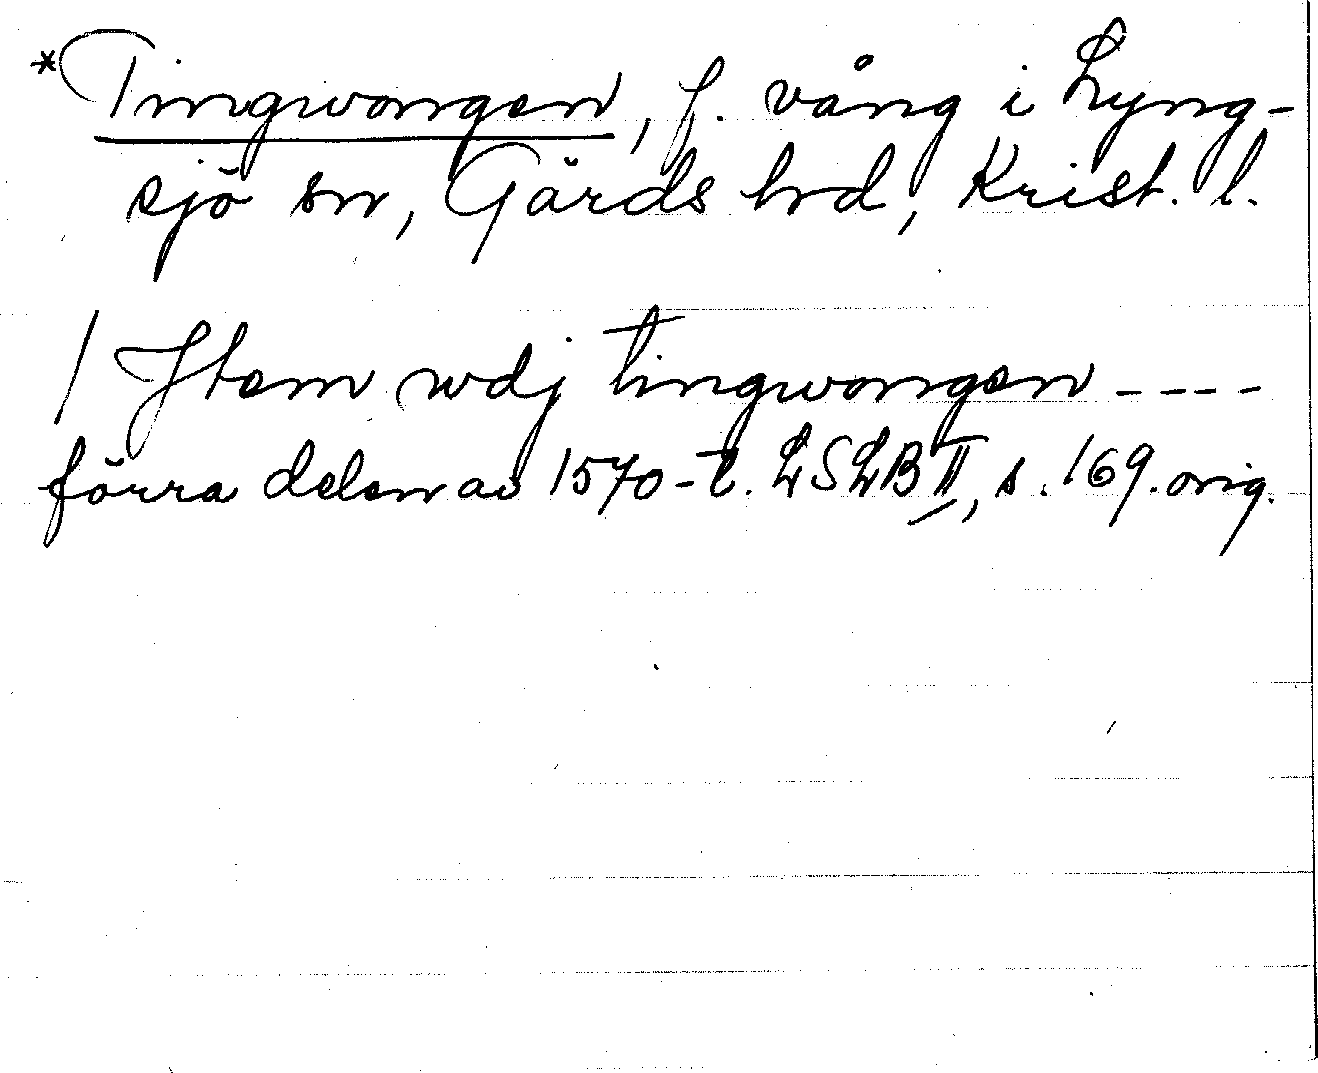 *Tingwongen, f. vång i Lyng-
sjö sn, Gärds hrd, Krist. l.
/ Jtem wdj tingwongen ----
förra delen av 1570-t. LSLB II, s. 169. orig.